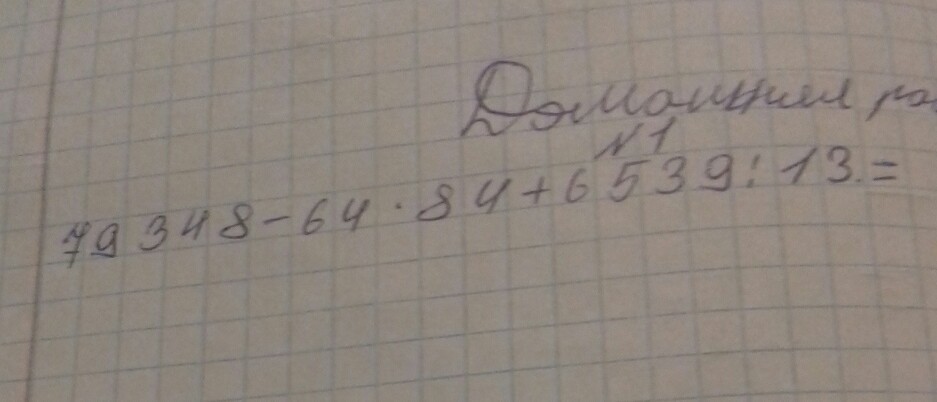 Домашняя ра
№1
79348-64·84+6539:13.=